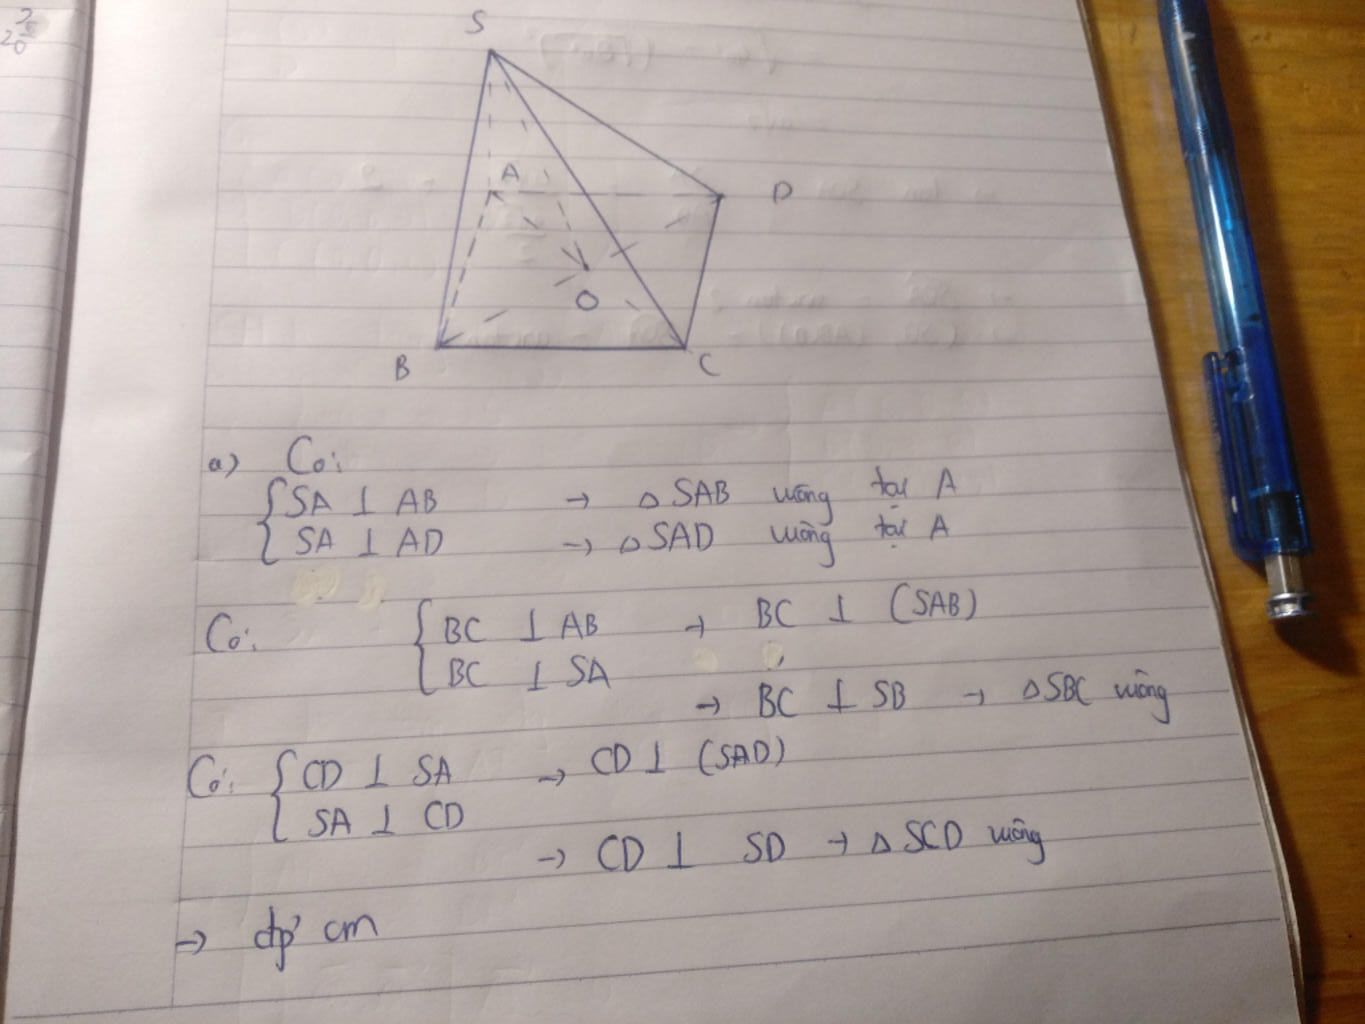 S
A
D
O
B
C
a) Có:
SA ⊥ AB → △ SAB vuông tại A
SA ⊥ AD → △ SAD vuông tại A
Có: BC ⊥ AB → BC ⊥ (SAB)
BC ⊥ SA
→ BC ⊥ SB → △SBC vuông
Có: CD ⊥ SA → CD ⊥ (SAD)
SA ⊥ CD
→ CD ⊥ SD → △ SCD vuông
→ đpcm